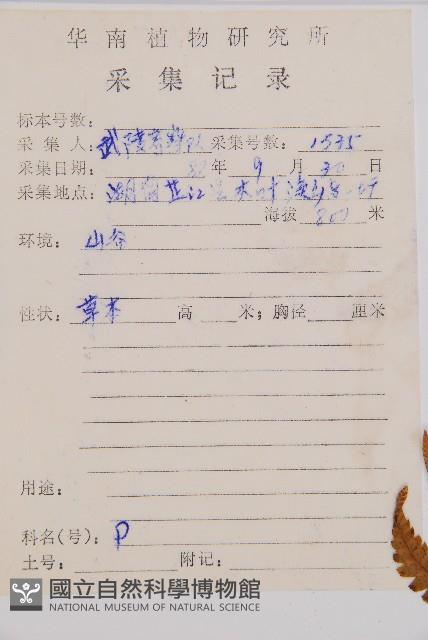 华南植物研究所
采集记录
标本号数:
采集人: 武陵 队 采集号数: 1535
采集日期: 年 9 月 30 日
采集地点: 湖南芷江
海拔 800 米
环境: 山谷
性状: 草本 高 米; 胸径 厘米
用途:
科名(号): P
土号: 附记:
國立自然科學博物館
NATIONAL MUSEUM OF NATURAL SCIENCE